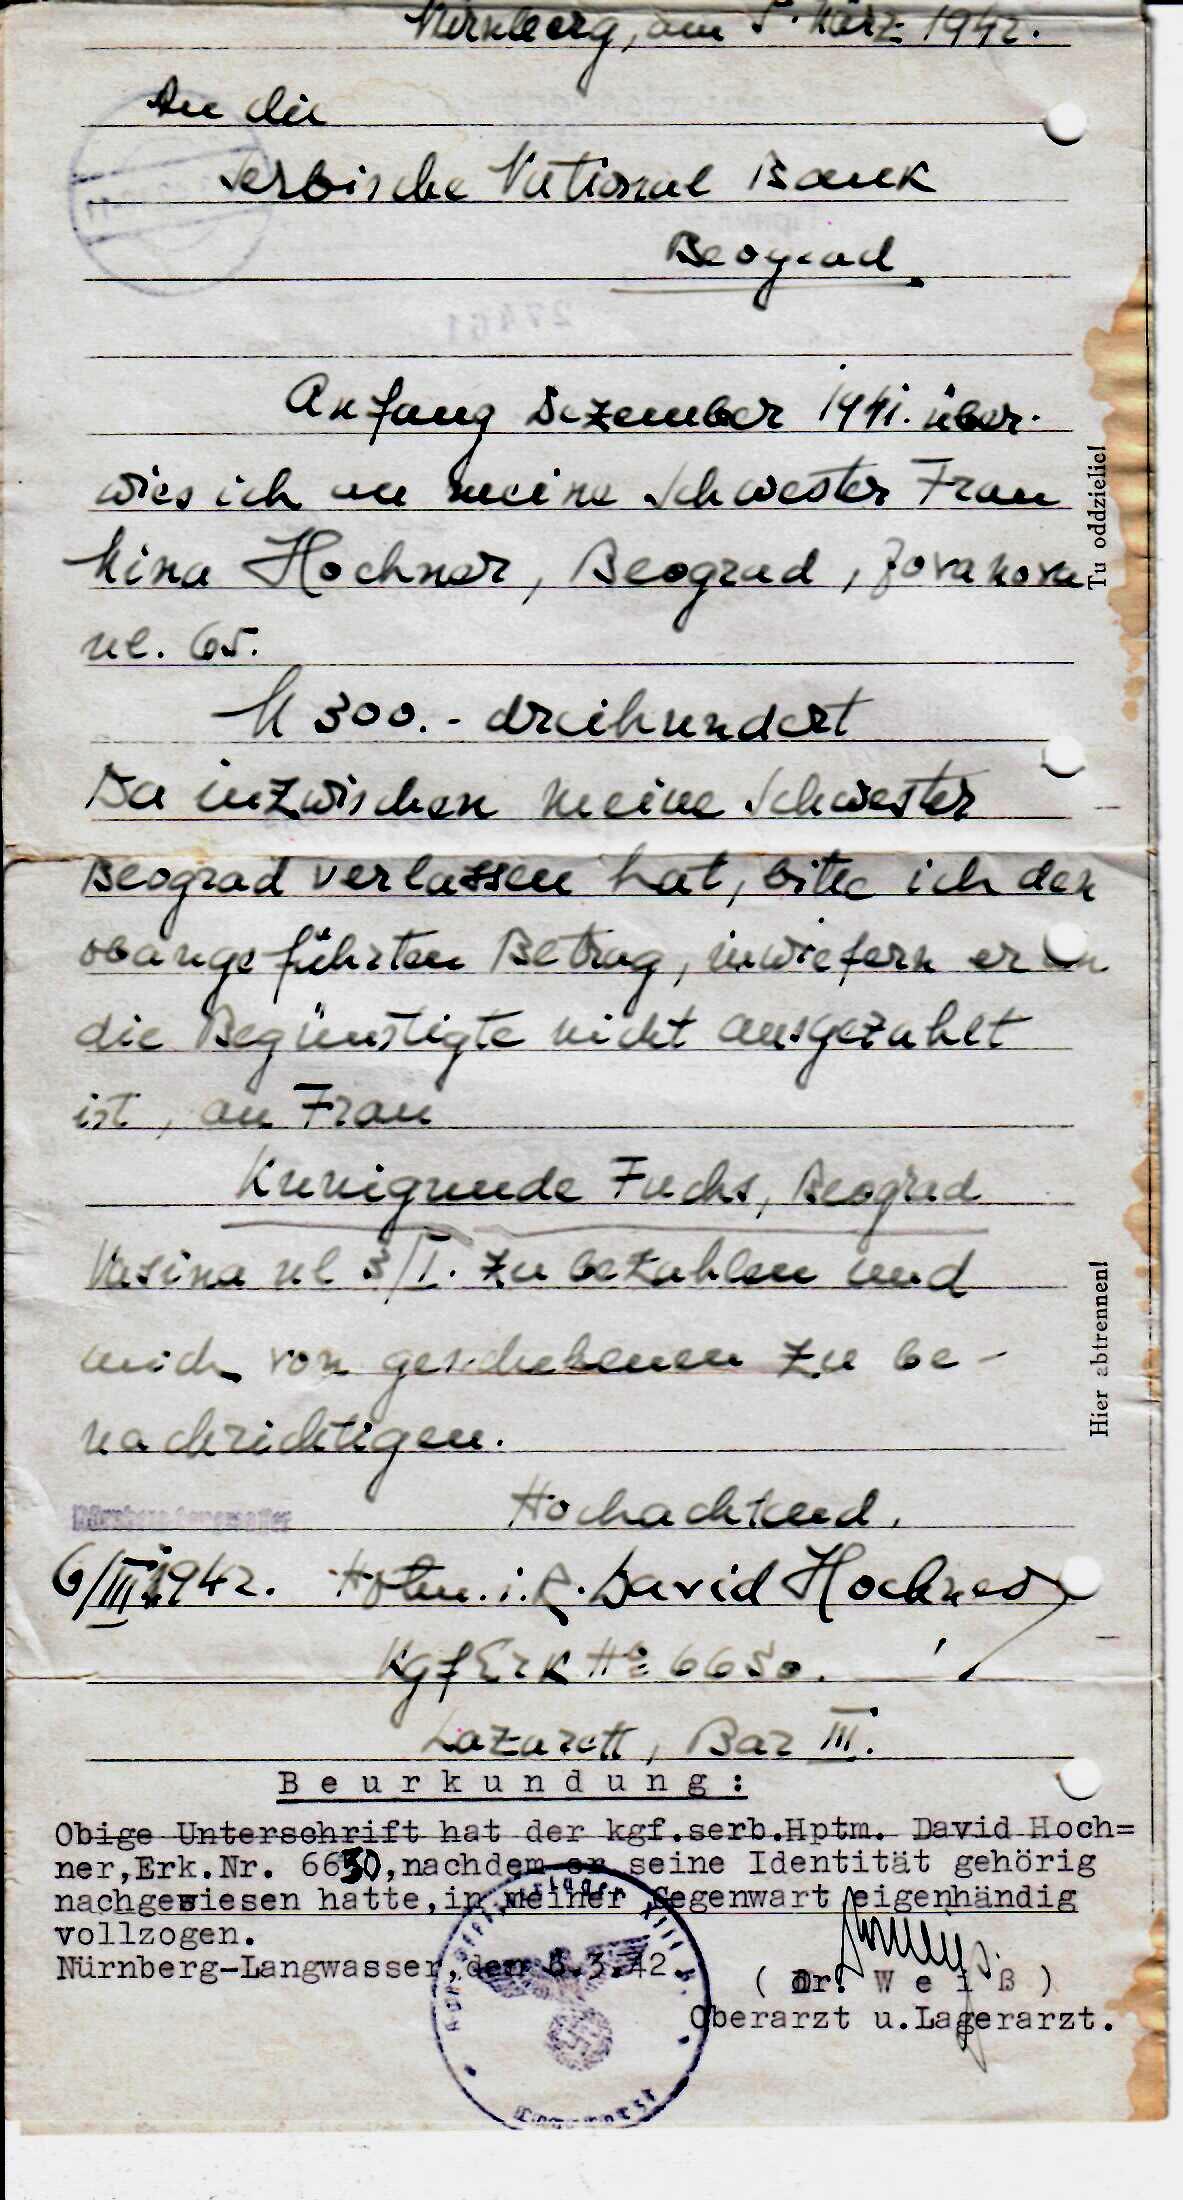 Nürnberg, am 5. März 1942.
An die
Serbische National Bank
Beograd.
27461
Anfang Dezember 1941. über-
wies ich an meine Schwester Frau
Mina Hochner, Beograd, Jovanova
ul. 65.
M 300.- dreihundert
Da inzwischen meine Schwester
Beograd verlassen hat, bitte ich den
obangeführten Betrag, inwiefern er an
die Begünstigte nicht ausgezahlt
ist, an Frau
Kunigunde Fuchs, Beograd
Vasina ul 3/I. zu bezahlen und
mich von geschehenen zu be-
nachrichtigen.
Hochachtend,
Nürnberg-Langwasser
6/III 1942. Hptm. i. R. David Hochner
KgfErk No 6650.
Lazarett, Bar III.
Beurkundung:
Obige Unterschrift hat der kgf.serb.Hptm. David Hoch=
ner,Erk.Nr. 6650,nachdem er seine Identität gehörig
nachgewiesen hatte,in meiner Gegenwart eigenhändig
vollzogen.
Nürnberg-Langwasser,den 6.3.42
(Dr. Weiß)
Oberarzt u.Lagerarzt.
Lagerarzt
Tu oddzielić!
Hier abtrennen!